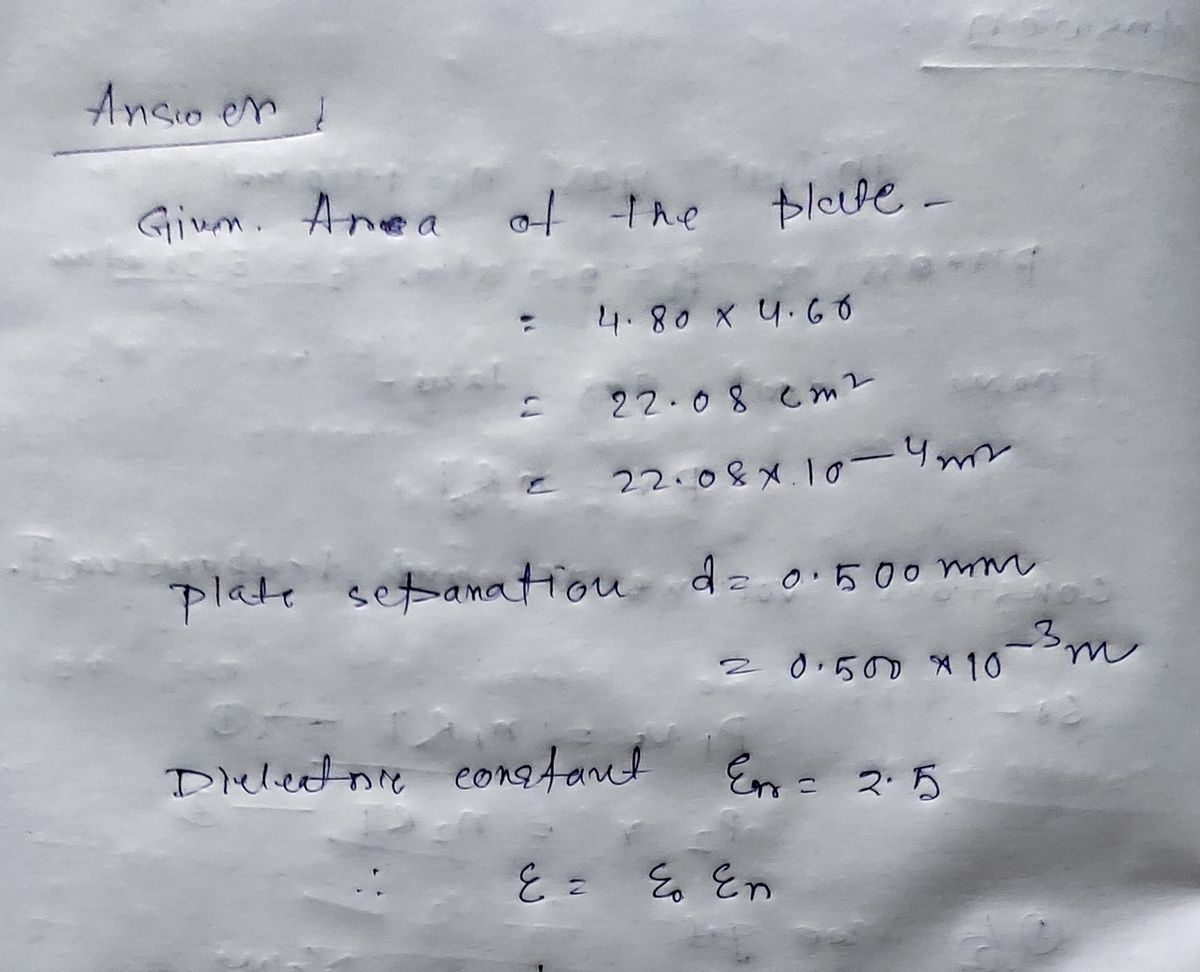 Answer :
Given. Area of the plate -
= 4.80 × 4.60
= 22.08 cm²
= 22.08 × 10⁻⁴ m²
plate separation d = 0.500 mm
= 0.500 × 10⁻³ m
Dielectric constant εr = 2.5
∴ ε = ε₀ εr